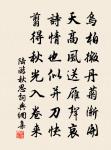 烏桕微丹菊漸開
天高風送雁聲哀
詩情也似并刀快
翦得秋光入卷來
陸游秋思詞典網集